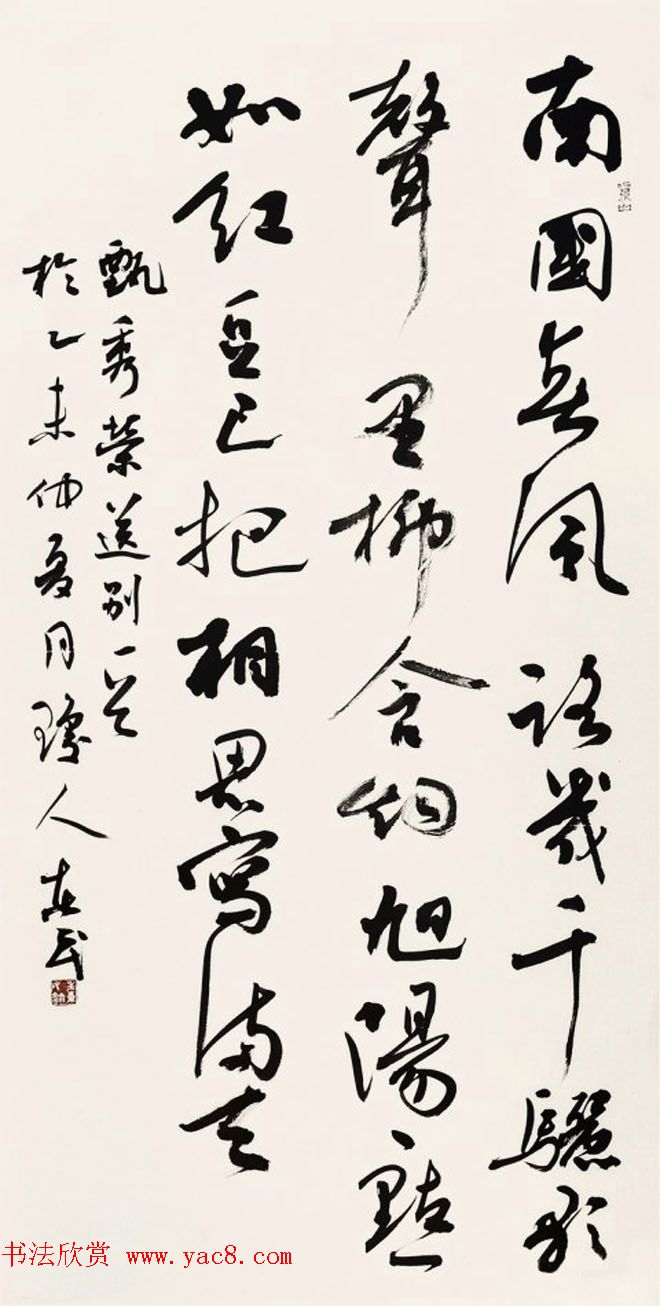 南國春風路幾千驪歌
聲里柳含烟旭陽一點
如紅豆已把相思寫滿天
甄秀榮送别一首
於乙未仲夏月瓊人东民
书法欣赏 www.yac8.com